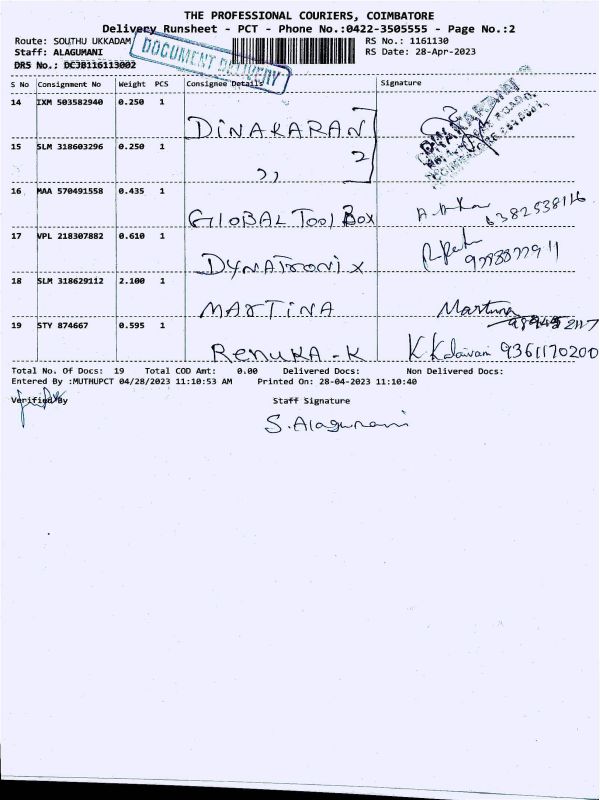 THE PROFESSIONAL COURIERS, COIMBATORE
Delivery Runsheet - PCT - Phone No.:0422-3505555 - Page No.:2
Route: SOUTHU UKKADAM RS No.: 1161130
Staff: ALAGUMANI RS Date: 28-Apr-2023
DRS No.: DCJB116113002
DOCUMENT DELIVERY
S No Consignment No Weight PCS Consignee Details Signature
14 IXM 503582940 0.250 1
DINAKARAN
15 SLM 318603296 0.250 1
2
,,
16 MAA 570491558 0.435 1
GLOBAL Tool Box 6382538116
17 VPL 218307882 0.610 1
DYNATronix
18 SLM 318629112 2.100 1
MARTINA Martina
19 STY 874667 0.595 1
RENUKA - K 9361170200
Total No. Of Docs: 19 Total COD Amt: 0.00 Delivered Docs: Non Delivered Docs:
Entered By :MUTHUPCT 04/28/2023 11:10:53 AM Printed On: 28-04-2023 11:10:40
Verified By Staff Signature
S. Alagumani